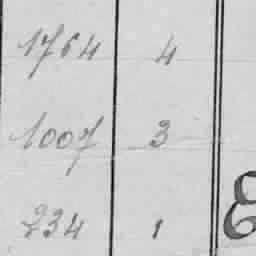 1764 4
1007 3
234 1
E